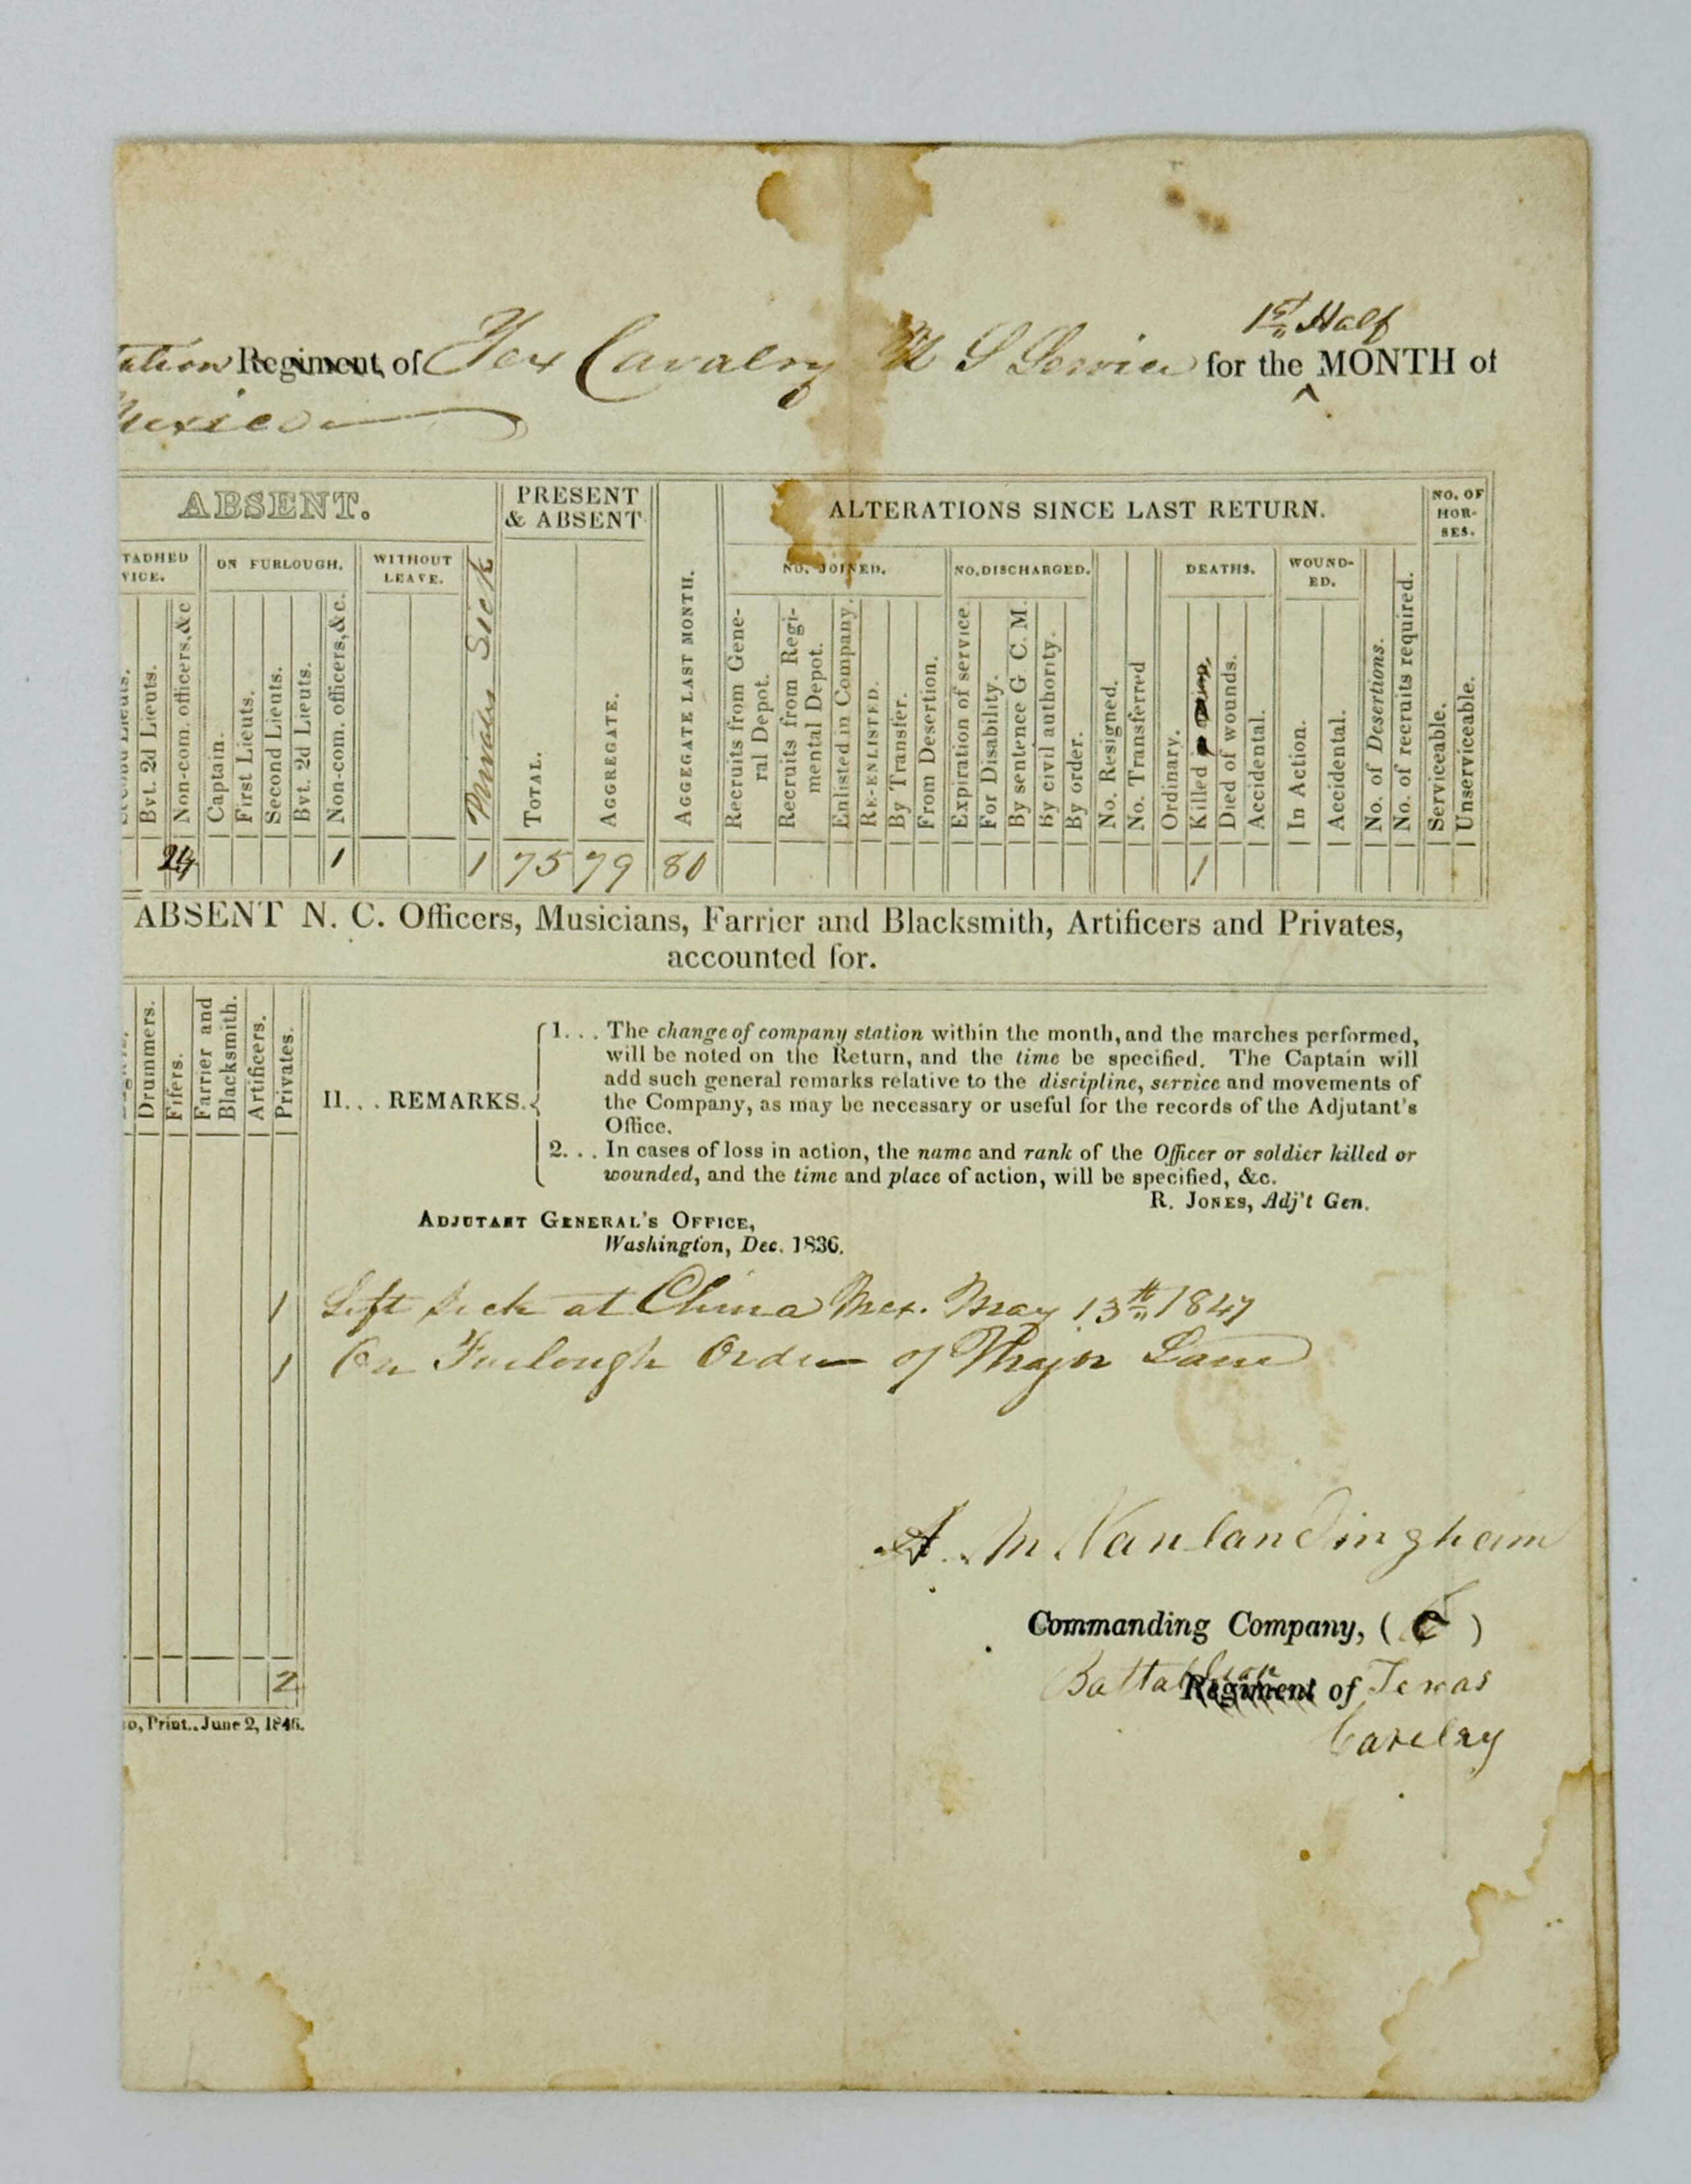 1st Half
ation Regiment of Tex Cavalry U S Service for the ^ MONTH of
Mexico
ABSENT.
PRESENT & ABSENT
ALTERATIONS SINCE LAST RETURN.
NO. OF HOR-SES.
TADHED VICE.
ON FURLOUGH.
WITHOUT LEAVE.
NO. JOINED.
NO. DISCHARGED.
DEATHS.
WOUND-ED.
Bvt. 2d Lieuts.
Non-com. officers, &c
Captain.
First Lieuts.
Second Lieuts.
Bvt. 2d Lieuts.
Non-com. officers, &c.
Privates Sick
TOTAL.
AGGREGATE.
AGGEGATE LAST MONTH.
Recruits from Gene-
ral Depot.
Recruits from Regi-
mental Depot.
Enlisted in Company.
RE-ENLISTED.
By Transfer.
From Desertion.
Expiration of service.
For Disability.
By sentence G C. M.
By civil authority.
By order.
No. Resigned.
No. Transferred
Ordinary.
Killed
Died of wounds.
Accidental.
In Action.
Accidental.
No. of Desertions.
No. of recruits required.
Serviceable.
Unserviceable.
24 1 1 75 79 80 1
ABSENT N. C. Officers, Musicians, Farrier and Blacksmith, Artificers and Privates,
accounted for.
Drummers.
Fifers.
Farrier and
Blacksmith.
Artificers.
Privates.
II... REMARKS.
1... The change of company station within the month, and the marches performed,
will be noted on the Return, and the time be specified. The Captain will
add such general remarks relative to the discipline, service and movements of
the Company, as may be necessary or useful for the records of the Adjutant's
Office.
2... In cases of loss in action, the name and rank of the Officer or soldier killed or
wounded, and the time and place of action, will be specified, &c.
R. JONES, Adj't Gen.
ADJUTANT GENERAL'S OFFICE,
Washington, Dec. 1836.
1 Left sick at China Mex. May 13th 1847
1 On Furlough Order of Major Lane
A. M Vanlandingham
Commanding Company, ( C )
Battalion Regiment of Texas
Cavelry
2
o, Print.. June 2, 1846.